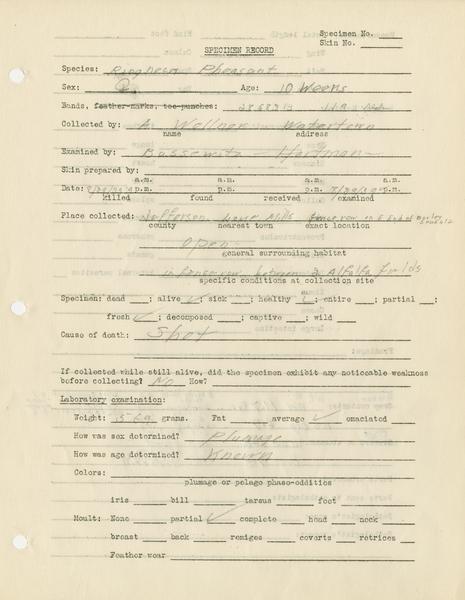 Specimen No.
Skin No.
SPECIMEN RECORD
Species: Ringneck Pheasant
Sex: Age: 10 Weeks
Bands, feather-marks, toe-punches:
Collected by: A. Wellner Watertown
name address
Examined by: Bussewitz - Hartman
Skin prepared by:
a.m. a.m. a.m. a.m.
Date: p.m. p.m. p.m. p.m.
killed found received examined
Place collected: Jefferson Lake Mills fence row on E End of
county nearest town exact location
Open
general surrounding habitat
in fencerow between 2 Alfalfa fields
specific conditions at collection site
Specimen: dead ; alive ✓; sick ; healthy ✓; entire ; partial ;
fresh ✓; decomposed ; captive ; wild
Cause of death: Shot
If collected while still alive, did the specimen exhibit any noticeable weakness
before collecting? No How?
Laboratory examination:
Weight: 569 grams. Fat average ✓ emaciated
How was sex determined? Plumage
How was age determined? Known
Colors:
plumage or pelage phase-oddities
iris bill tarsus foot
Moult: None partial ✓ complete head neck
breast back remiges coverts retrices
Feather wear